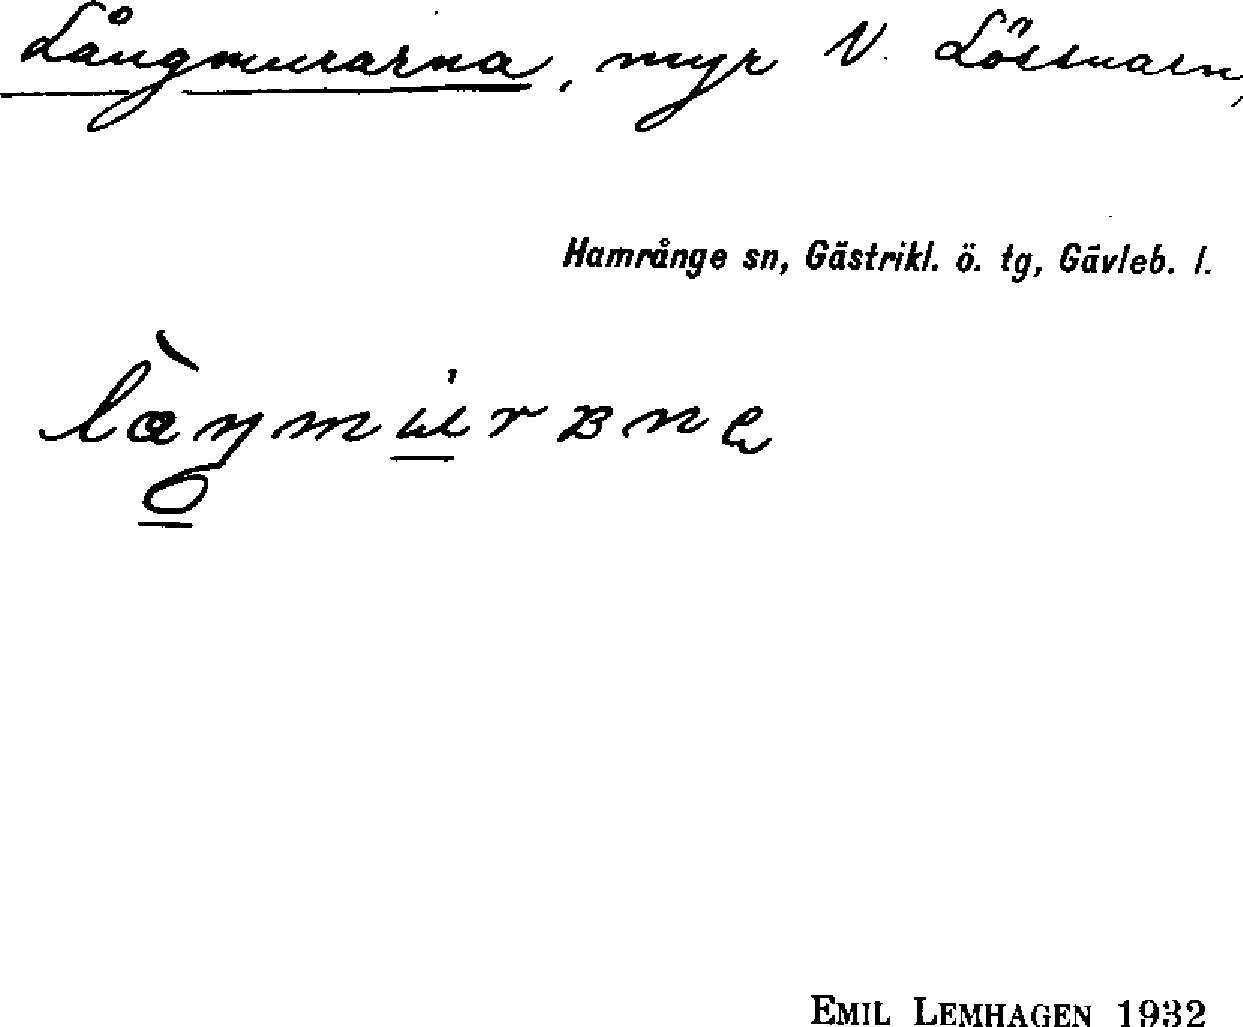 Långmurarna, myr V. Lössnaren,
Hamrånge sn, Gästrikl. ö. tg, Gävleb. l.
EMIL LEMHAGEN 1932